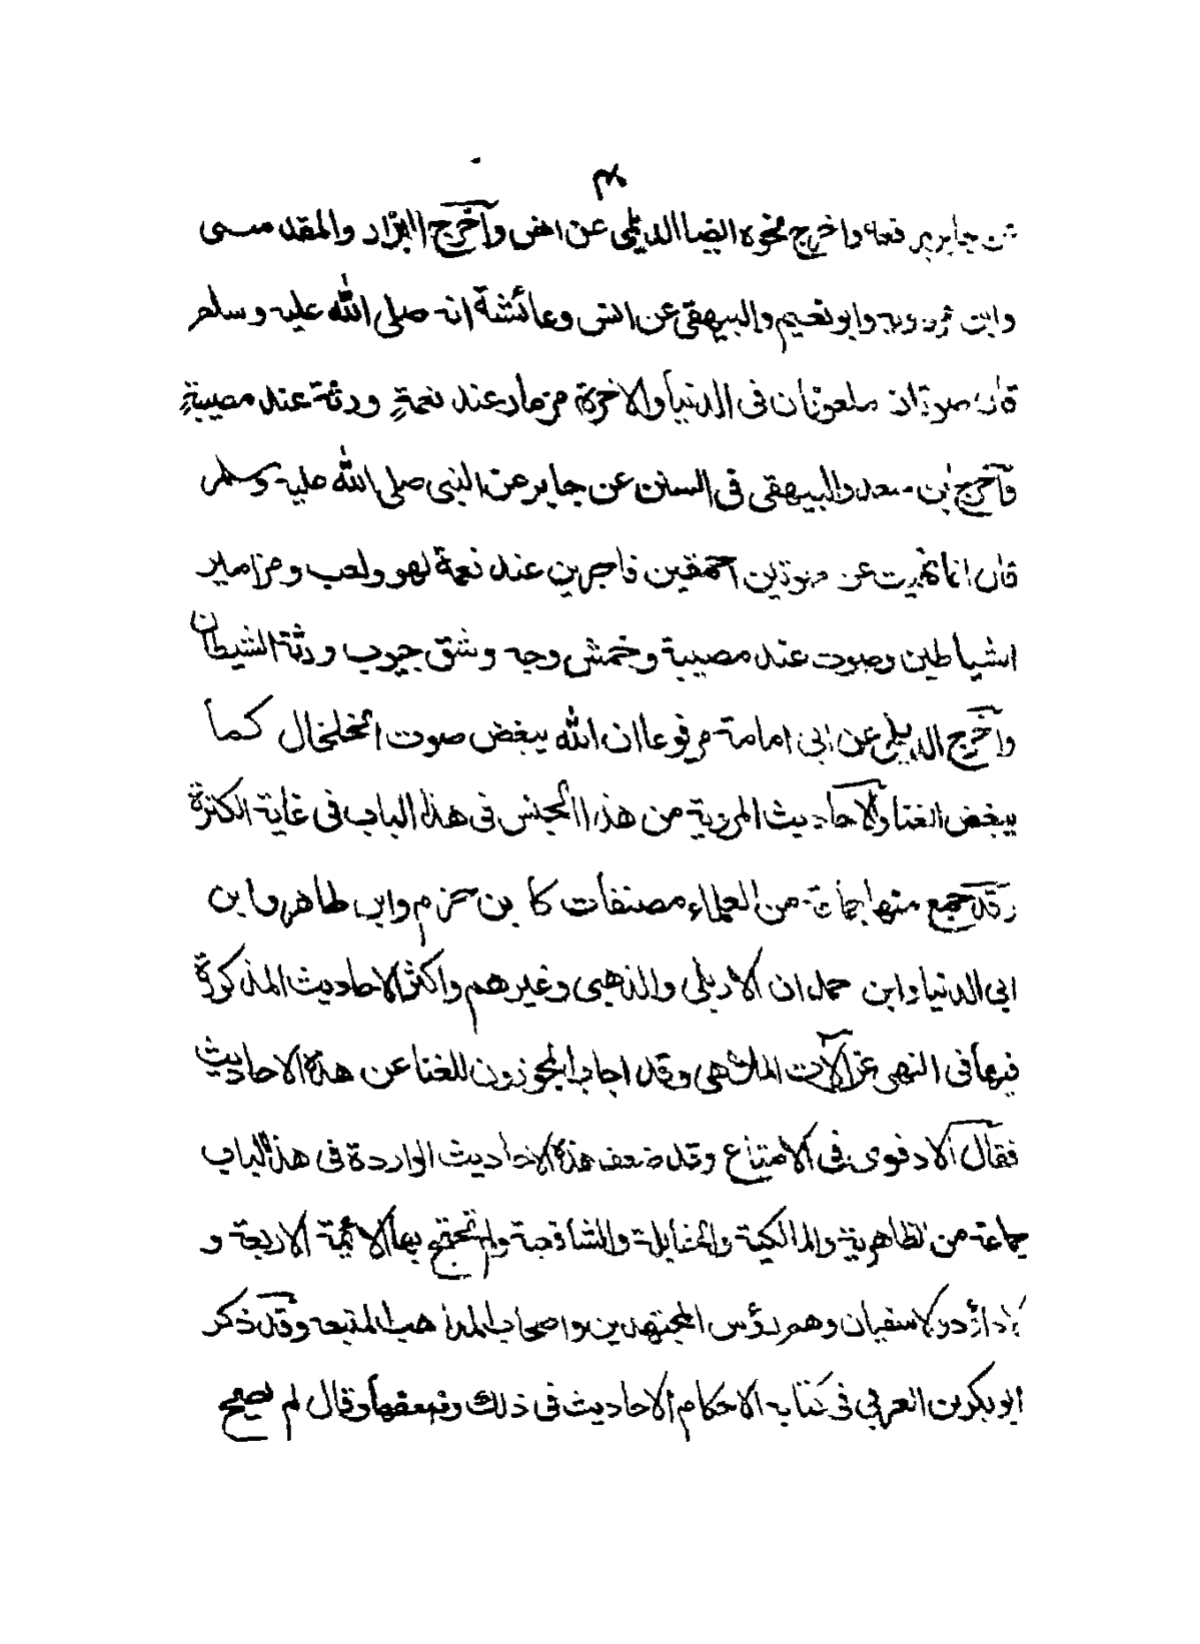 عن جابر يرفعه واخرج نحوه ايضا الديلمى عن انس وآخرج البزار والمقدسى
وابن مردويه وابو نعيم والبيهقى عن انس وعائشة انه صلى الله عليه وسلم
قال صوتان ملعونان فى الدنيا والاخرة مزمار عند نعمةٍ ورنة عند مصيبةٍ
وآخرج ابن سعد والبيهقى فى السنن عن جابر عن النبى صلى الله عليه وسلم
قال انما نهيت عن صوتين احمقين فاجرين عند نعمة لهو ولعب ومزامير
الشياطين وصوت عند مصيبة وخمش وجه وشق جيوب ورنة الشيطان
وآخرج الديلمى عن ابى امامة مرفوعا ان الله يبغض صوت الخلخال كما
يبغض الغنا والاحاديث المروية من هذا الجنس فى هذا الباب فى غاية الكثرة
وقد جمع منها جماعة من العلماء مصنفات كابن حزم وابن طاهر وابن
ابى الدنيا وابن حمدان الاربلى والذهبى وغيرهم واكثر الاحاديث المذكورة
فيها فى النهى عن آلات الملاهى وقد اجاب المجوزون للغنا عن هذه الاحاديث
فقال الادفوى فى الامتاع وقد ضعف هذه الاحاديث الواردة فى هذا الباب
جماعة من الظاهرية والمالكية والحنابلة والشافعية ولم تحتج بها الائمة الاربعة و
لا داؤد ولا سفيان وهم رؤس المجتهدين واصحاب المذاهب المتبعه وقد ذكر
ابو بكر بن العربي فى كتاب الاحكام الاحاديث فى ذلك وضعفها وقال لم يصح